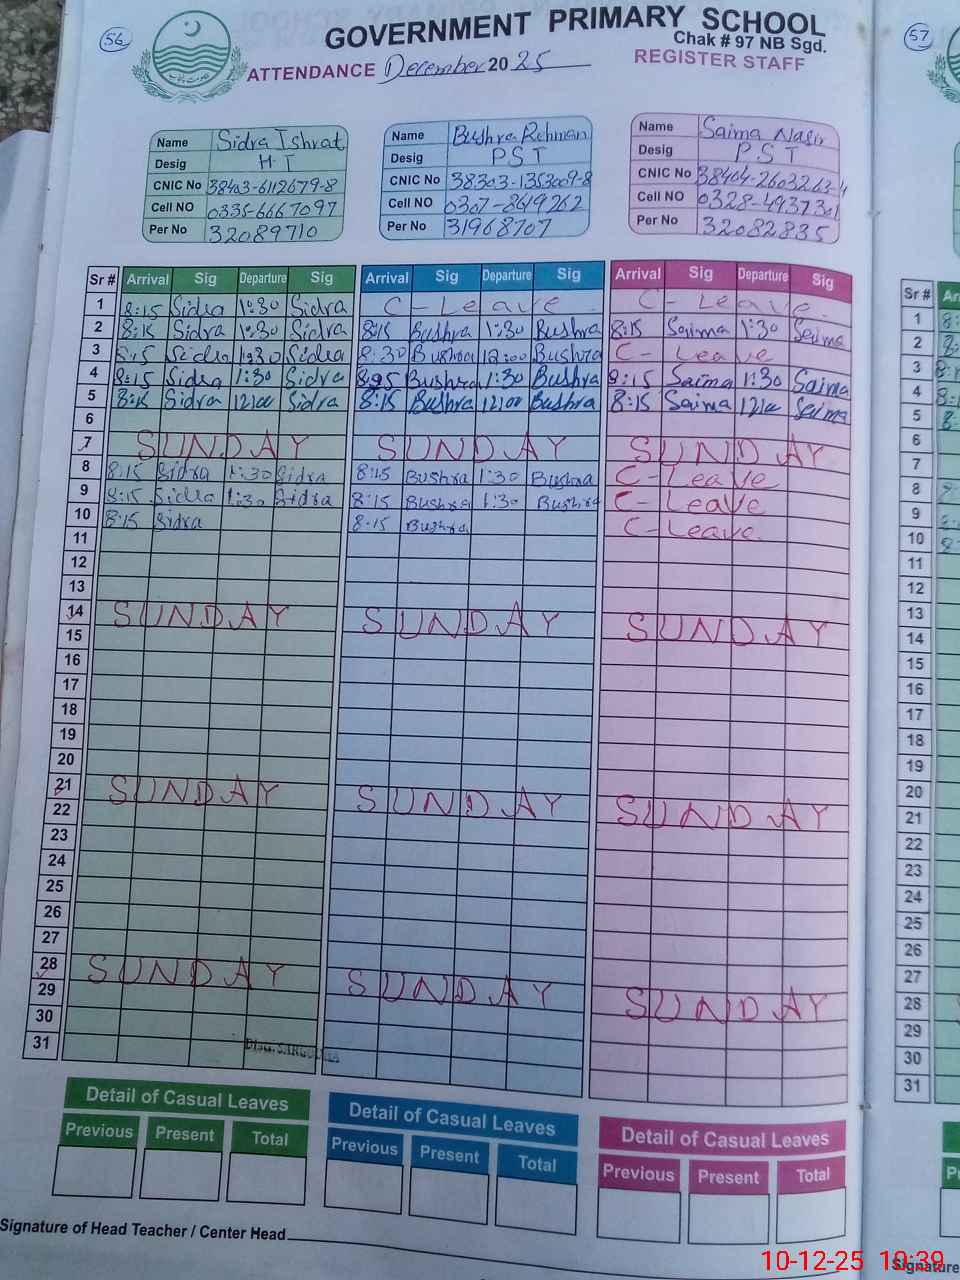 56
GOVERNMENT PRIMARY SCHOOL
Chak # 97 NB Sgd.
57
ATTENDANCE December 2025
REGISTER STAFF
Name Sidra Ishrat
Desig H T
CNIC No 38403-6112679-8
Cell NO 0335-6667097
Per No 32089710
Name Bushra Rehman
Desig PST
CNIC No 38303-1353009-8
Cell NO 0307-8619262
Per No 31968707
Name Saima Nasir
Desig PST
CNIC No 38404-2603263-4
Cell NO 0328-4937301
Per No 32082835
Sr # Arrival Sig Departure Sig Arrival Sig Departure Sig Arrival Sig Departure Sig
1 8:15 Sidra 1:30 Sidra C-Leave C-Leave.
2 8:15 Sidra 1:30 Sidra 8:15 Bushra 1:30 Bushra 8:15 Saima 1:30 Saima
3 8:15 Sidra 1:30 Sidra 8:30 Bushra 12:00 Bushra C-Leave
4 8:15 Sidra 1:30 Sidra Bushra 1:30 Bushra 8:15 Saima 1:30 Saima
5 8:15 Sidra 12:00 Sidra 8:15 Bushra 12:00 Bushra 8:15 Saima 12:00 Saima
6
7 SUNDAY SUNDAY SUNDAY
8 8:15 Sidra 1:30 Sidra 8:15 Bushra 1:30 Bushra C-Leave
9 8:15 Sidra 1:30 Sidra 8:15 Bushra 1:30 Bushra C-Leave
10 8:15 Sidra 8:15 Bushra C-Leave.
11
12
13
14 SUNDAY SUNDAY SUNDAY
15
16
17
18
19
20
21 SUNDAY SUNDAY SUNDAY
22
23
24
25
26
27
28 SUNDAY SUNDAY SUNDAY
29
30
31
Distt. SARGODHA
Detail of Casual Leaves
Previous Present Total
Detail of Casual Leaves
Previous Present Total
Detail of Casual Leaves
Previous Present Total
Signature of Head Teacher / Center Head
Sr #
1
2
3
4
5
6
7
8
9
10
11
12
13
14
15
16
17
18
19
20
21
22
23
24
25
26
27
28
29
30
31
Signature
10-12-25 10:39